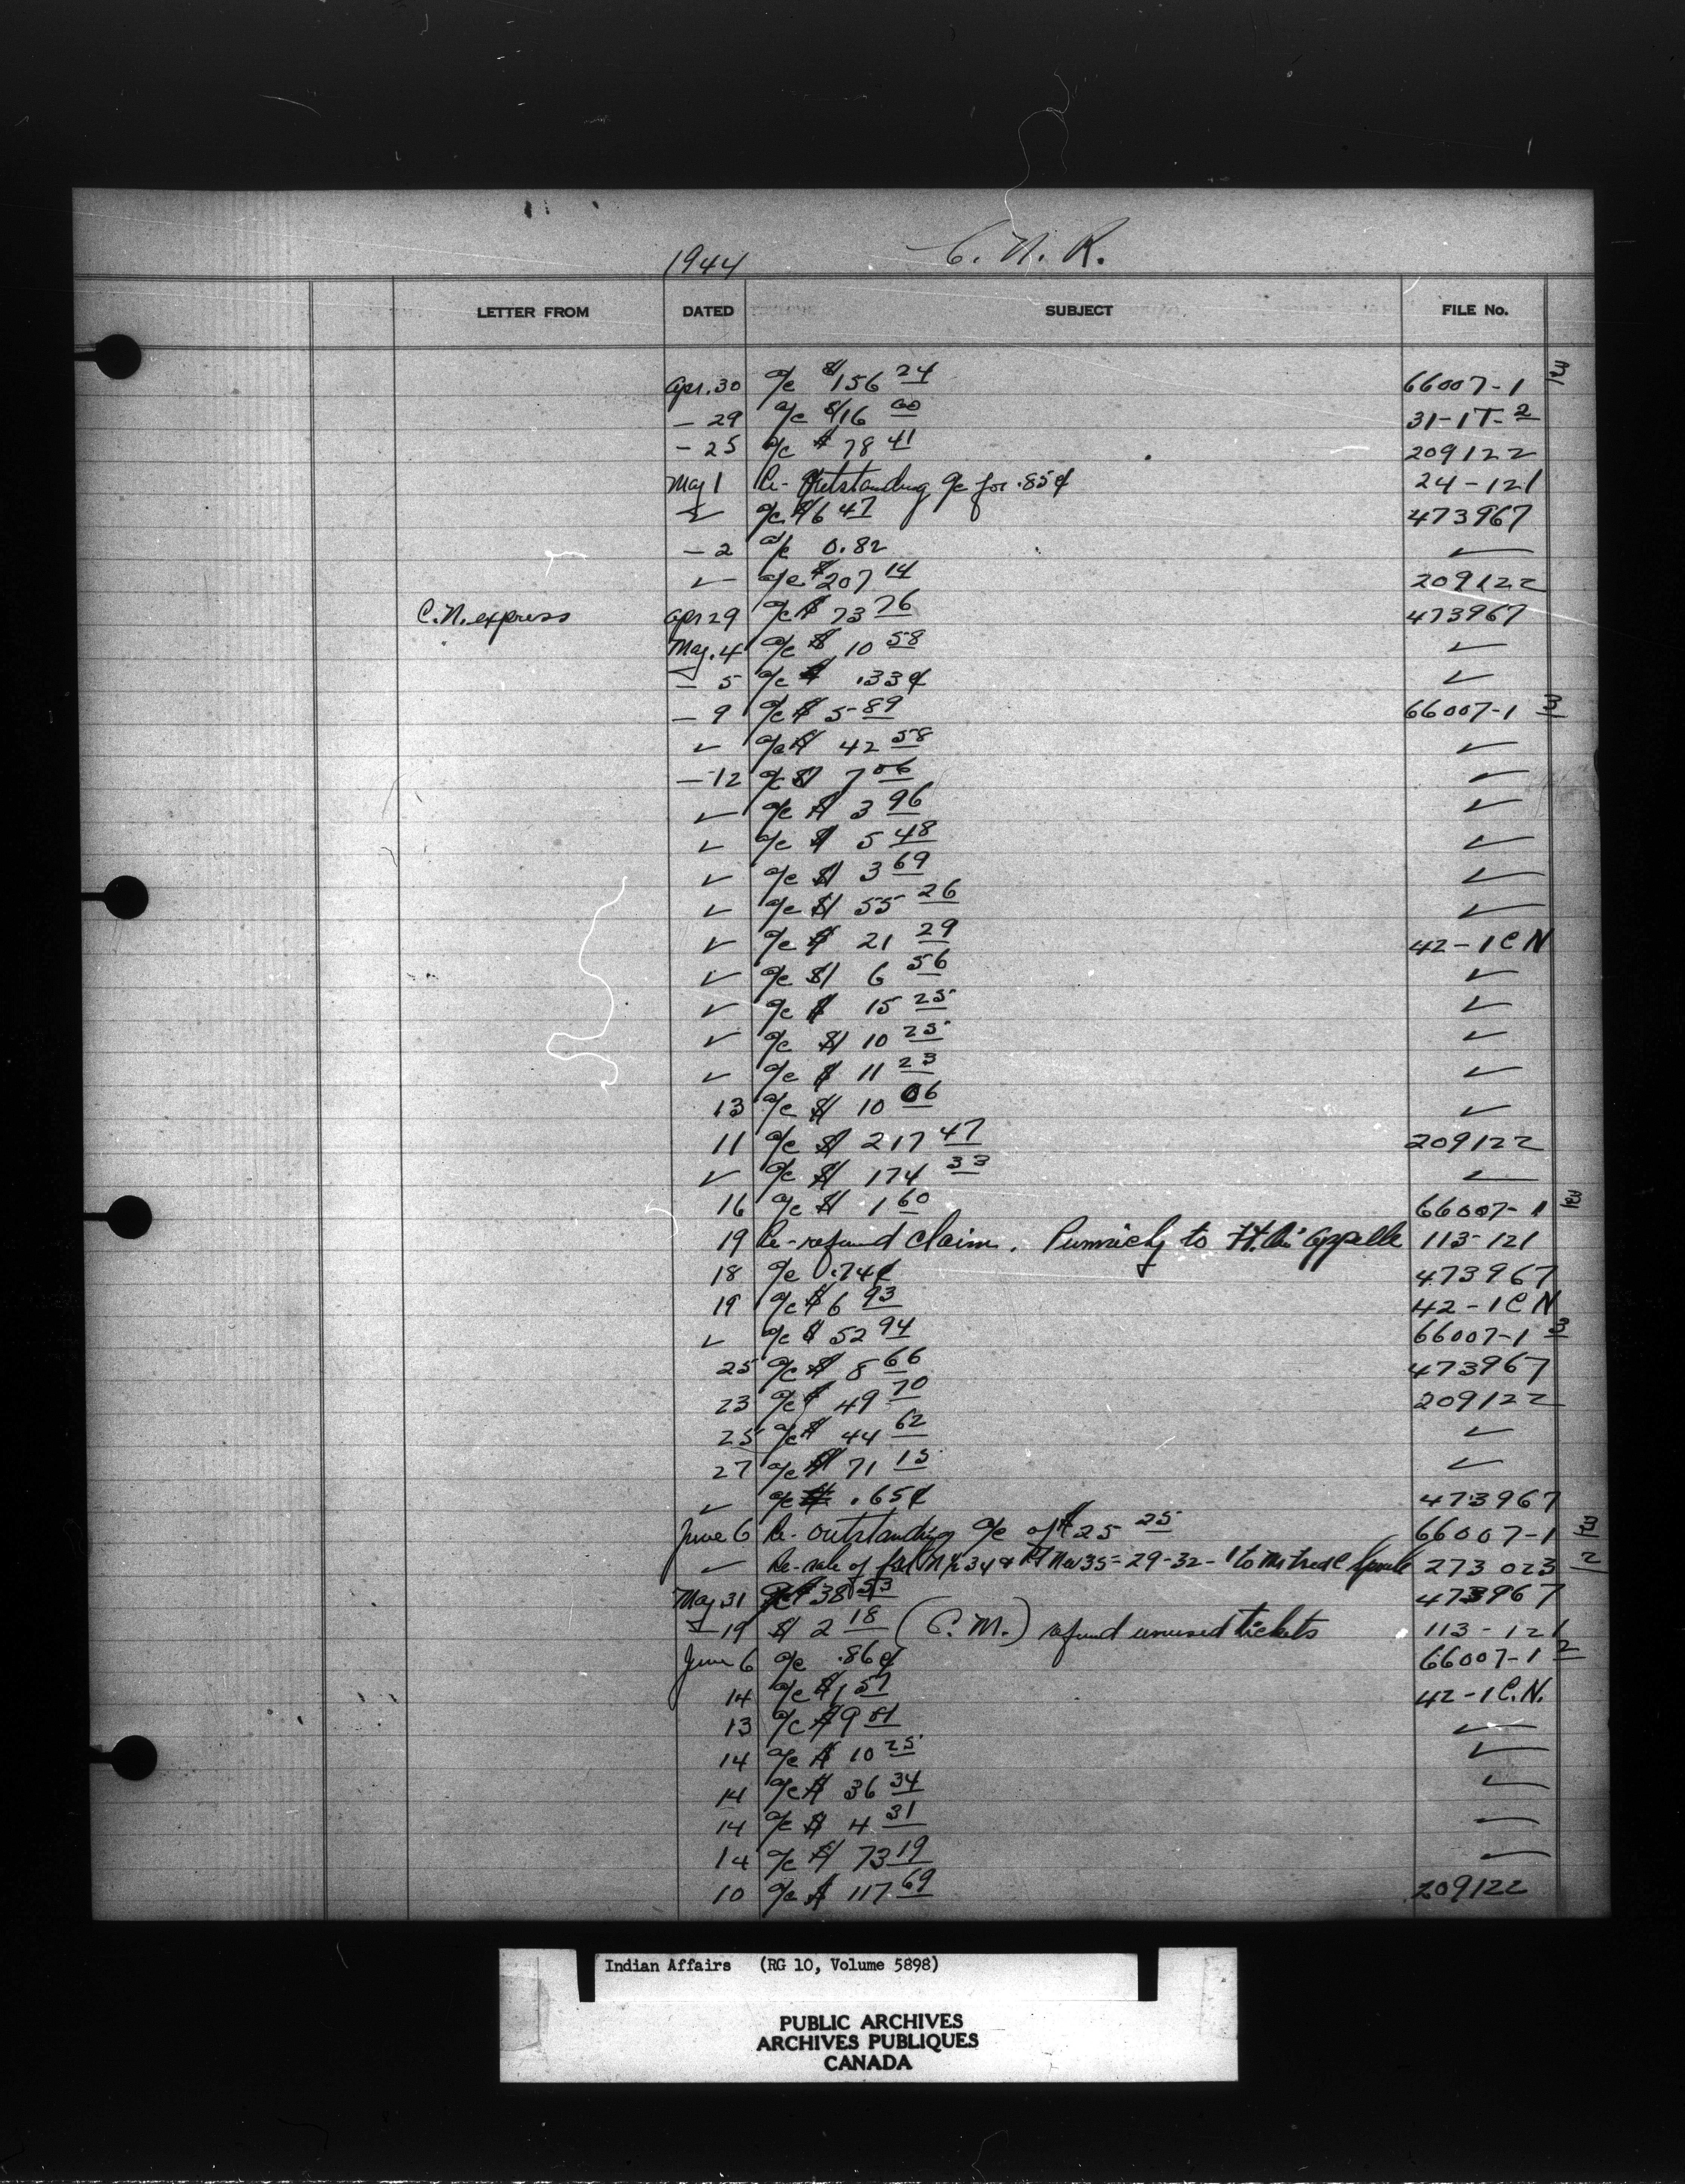 1944 C. N. R.
LETTER FROM DATED SUBJECT FILE No.
Apr. 30 a/c $156 24 66007-1 pt 3
- 29 a/c $16 00 31-17-2
- 25 a/c $ 78 41 209122
May 1 Re- Outstanding a/c for .85¢ 24-121
✓ a/c $6 47 473967
- 2 a/c 0.82 ✓
✓ a/c $207 14 209122
C.N. express Apr 29 a/c $ 73 76 473967
May. 4 a/c $ 10 58 ✓
- 5 a/c $ .33¢ ✓
- 9 a/c $ 5 89 66007-1 3
✓ a/c $ 42 58 ✓
- 12 a/c $ 7 06 ✓
✓ a/c $ 3 96 ✓
✓ a/c $ 5 48 ✓
✓ a/c $ 3 69 ✓
✓ a/c $ 55 26 ✓
✓ a/c $ 21 29 42-1 C N
✓ a/c $ 6 56 ✓
✓ a/c $ 15 25 ✓
✓ a/c $ 10 25 ✓
✓ a/c $ 11 23 ✓
13 a/c $ 10 06 ✓
11 a/c $ 217 47 209122
✓ a/c $ 174 33 ✓
16 a/c $ 1 60 66007-1
19 Re- refund claim. Punnichy to Ft. Qu'Appelle 113-121
18 a/c .74¢ 473967
19 a/c $ 6 93 42-1 C N
✓ a/c $ 52 94 66007-1 3
25 a/c $ 8 66 473967
23 a/c $ 49 70 209122
25 a/c $ 44 62 ✓
27 a/c $ 71 15 ✓
✓ a/c .65¢ 473967
June 6 Re- outstanding a/c of $25 25 66007-1 3
✓ Re- sale of 34 & 35 = 29-32-1 to 273023 2
May 31 a/c $38 53 473967
- 19 $ 2 18 (C. M.) refund unused tickets 113-121
June 6 a/c .86¢ 66007-1 2
14 a/c $1 57 42-1 C.N.
13 a/c $9 01 ✓
14 a/c $ 10 25 ✓
14 a/c $ 36 34 ✓
14 a/c $ 4 31 ✓
14 a/c $ 73 19 ✓
10 a/c $ 117 69 209122
Indian Affairs (RG 10, Volume 5898)
PUBLIC ARCHIVES
ARCHIVES PUBLIQUES
CANADA